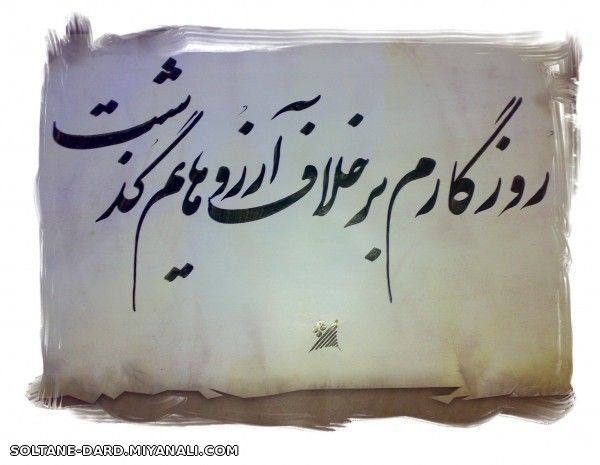 روزگارم بر خلاف آرزوهایم گذشت
SOLTANE-DARD.MIYANALI.COM